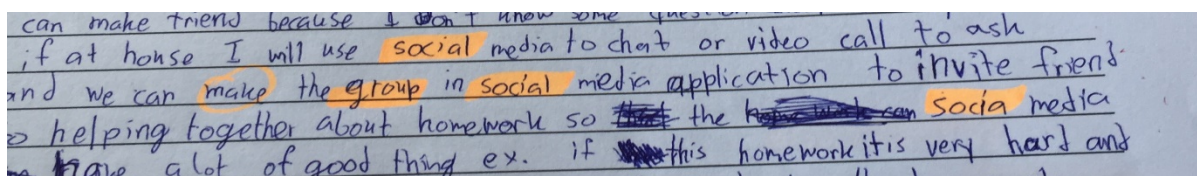 can make friend because I don't know some question
if at house I will use social media to chat or video call to ask
and we can make the group in social media application to invite friend
helping together about homework so the socia media
have a lot of good thing ex. if this homework it is very hard and